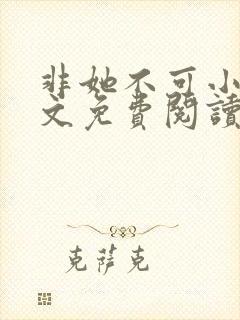 非她不可小
文免費閱讀
克萨克